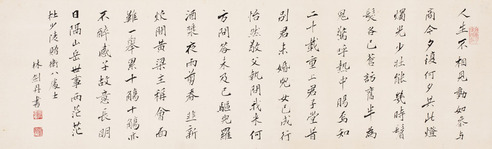 人生不相見動如參與
商今夕復何夕共此燈
燭光少壯能幾時鬢
髮各已蒼訪舊半為
鬼驚呼熱中腸焉知
二十載重上君子堂昔
別君未婚兒女已成行
怡然敬父執問我來何
方問答未及已驅兒羅
酒漿夜雨剪春韭新
炊間黃粱主稱會面
難一舉累十觴十觴亦
不醉感子故意長明
日隔山岳世事兩茫茫
杜少陵贈衛八處士
林劍丹書